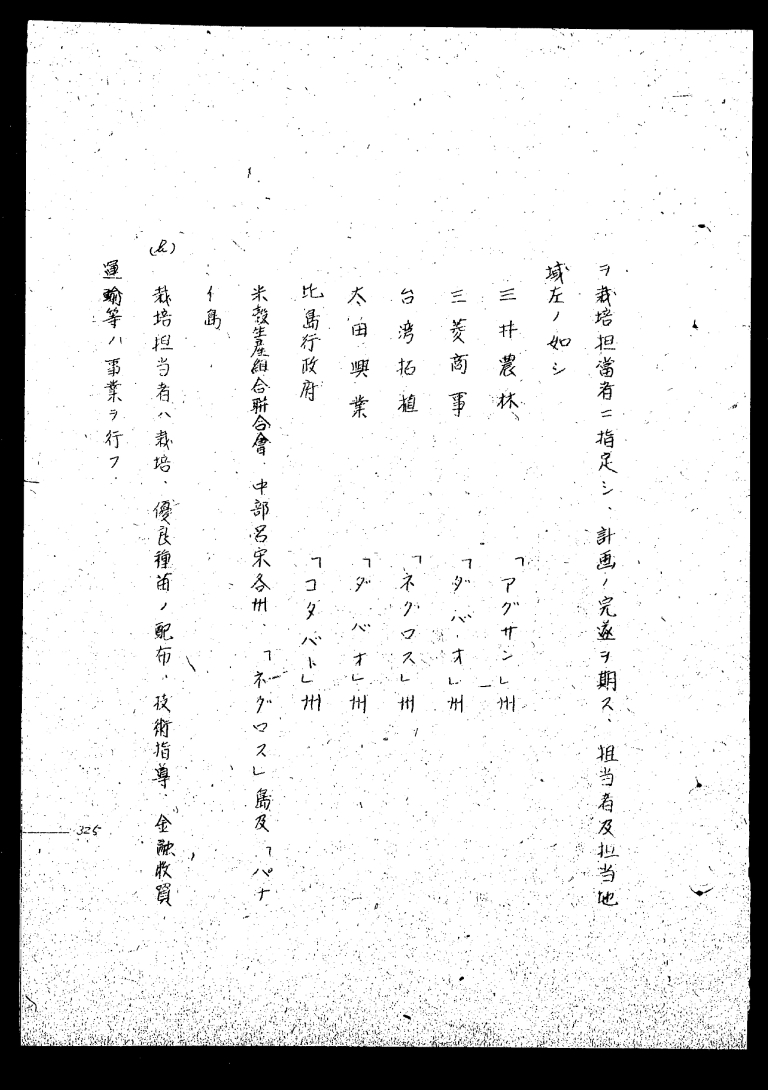 ヲ栽培担當者ニ指定シ、計画ノ完遂ヲ期ス、担当者及担当地
域左ノ如シ
三井農林 「アグサン」州
三菱商事 「ダバオ」州
台湾拓植 「ネグロス」州
太田興業 「ダバオ」州
比島行政府 「コタバト」州
米穀生産組合聯合會 中部呂宋各州、「ネグロス」島及「パナ
イ島
栽培担当者ハ栽培、優良種苗ノ配布、技術指導、金融收買、
運輸等ノ事業ヲ行フ
325